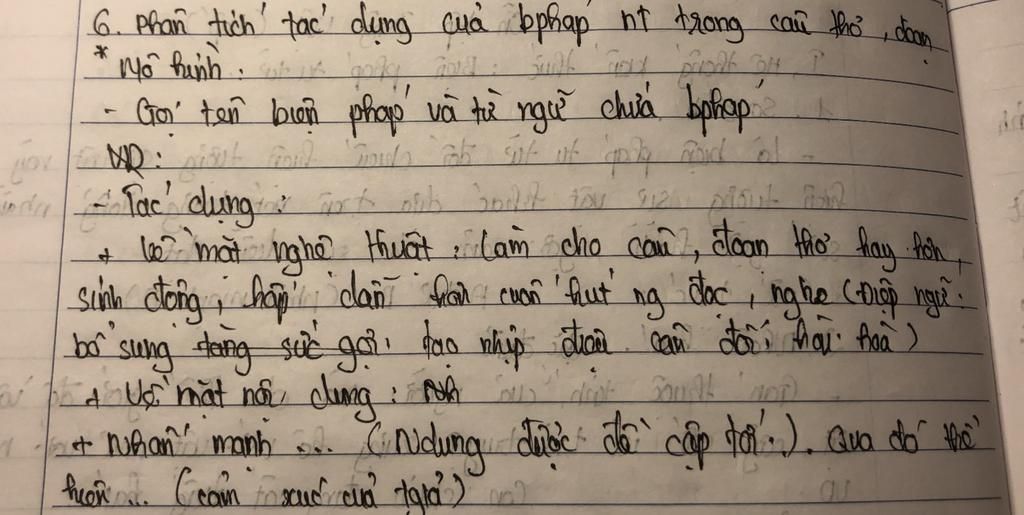 6. Phân tích tác dụng của bpháp nt trong câu thơ, đoạn
* Mô hình:
- Gọi tên biện pháp và từ ngữ chứa bpháp
VD:
- Tác dụng:
+ Về mặt nghệ thuật: Làm cho câu, đoạn thơ hay hơn,
sinh động, hấp dẫn hơn cuốn hút ng đọc, nghe (điệp ngữ:
bổ sung tăng sức gợi, tạo nhịp điệu cân đối, hài hoà)
+ Về mặt nội dung: Nh
+ Nhấn mạnh ... (Ndung được đề cập tới.). Qua đó thể
hiện ... (cảm xúc của tgiả)